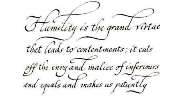 Humility is the grand virtue
that leads to contentment; it cuts
off the envy and malice of inferiours
and equals and makes us patiently